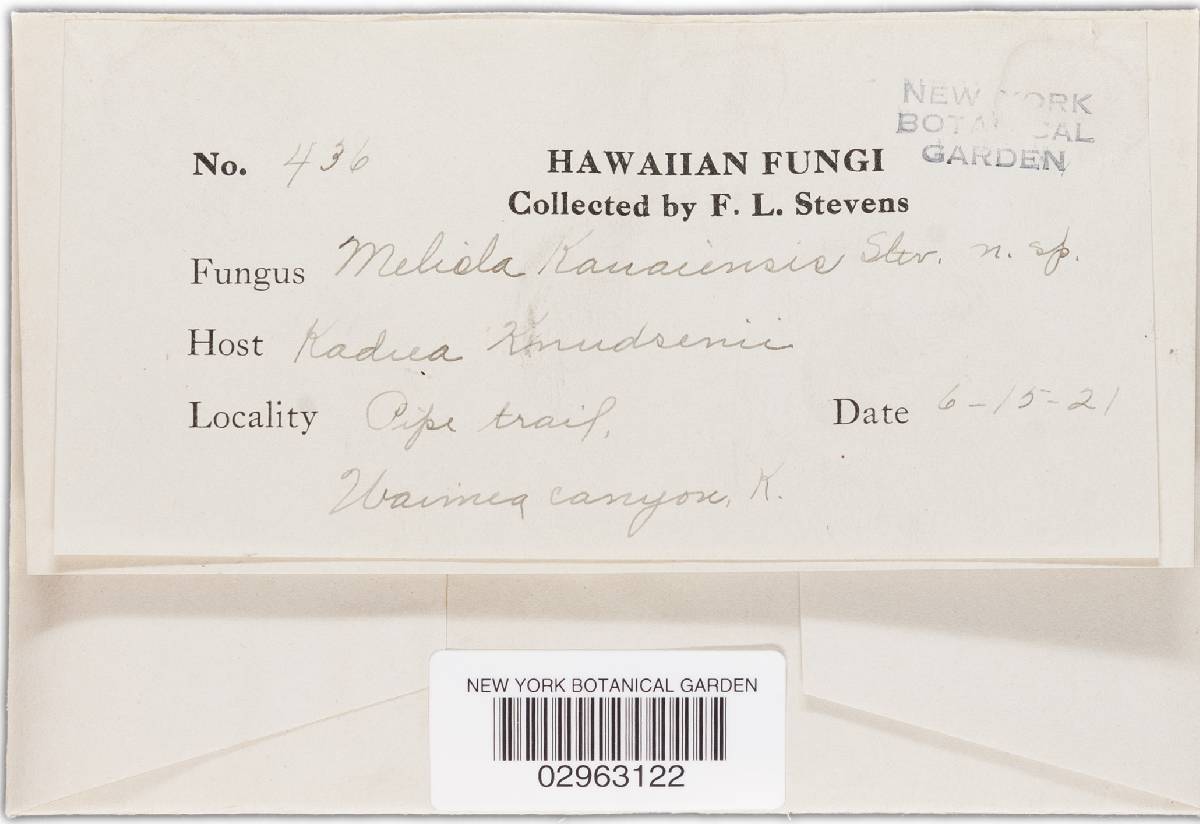 NEW YORK
BOTANICAL
GARDEN
No. 436
HAWAIIAN FUNGI
Collected by F. L. Stevens
Fungus Meliola Kauaiensis Stev. n. sp.
Host Kadua Knudsenii
Locality Pipe trail, Date 6-15-21
Waimea canyon, K.
NEW YORK BOTANICAL GARDEN
02963122